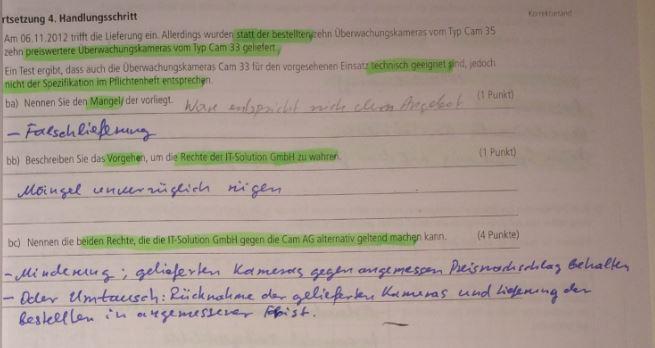 rtsetzung 4. Handlungsschritt
Korrekturrand
Am 06.11.2012 trifft die Lieferung ein. Allerdings wurden statt der bestellten zehn Überwachungskameras vom Typ Cam 35
zehn preiswertere Überwachungskameras vom Typ Cam 33 geliefert.
Ein Test ergibt, dass auch die Überwachungskameras Cam 33 für den vorgesehenen Einsatz technisch geeignet sind, jedoch
nicht der Spezifikation im Pflichtenheft entsprechen.
ba) Nennen Sie den Mangel, der vorliegt. Ware entspricht nicht dem Angebot (1 Punkt)
- Falschlieferung
bb) Beschreiben Sie das Vorgehen, um die Rechte der IT-Solution GmbH zu wahren. (1 Punkt)
Mängel unverzüglich rügen
bc) Nennen die beiden Rechte, die die IT-Solution GmbH gegen die Cam AG alternativ geltend machen kann. (4 Punkte)
- Minderung; gelieferten Kameras gegen angemessen Preisnachschlag behalten
- Oder Umtausch: Rücknahme der gelieferten Kameras und Lieferung der
bestellten in angemessener Frist.